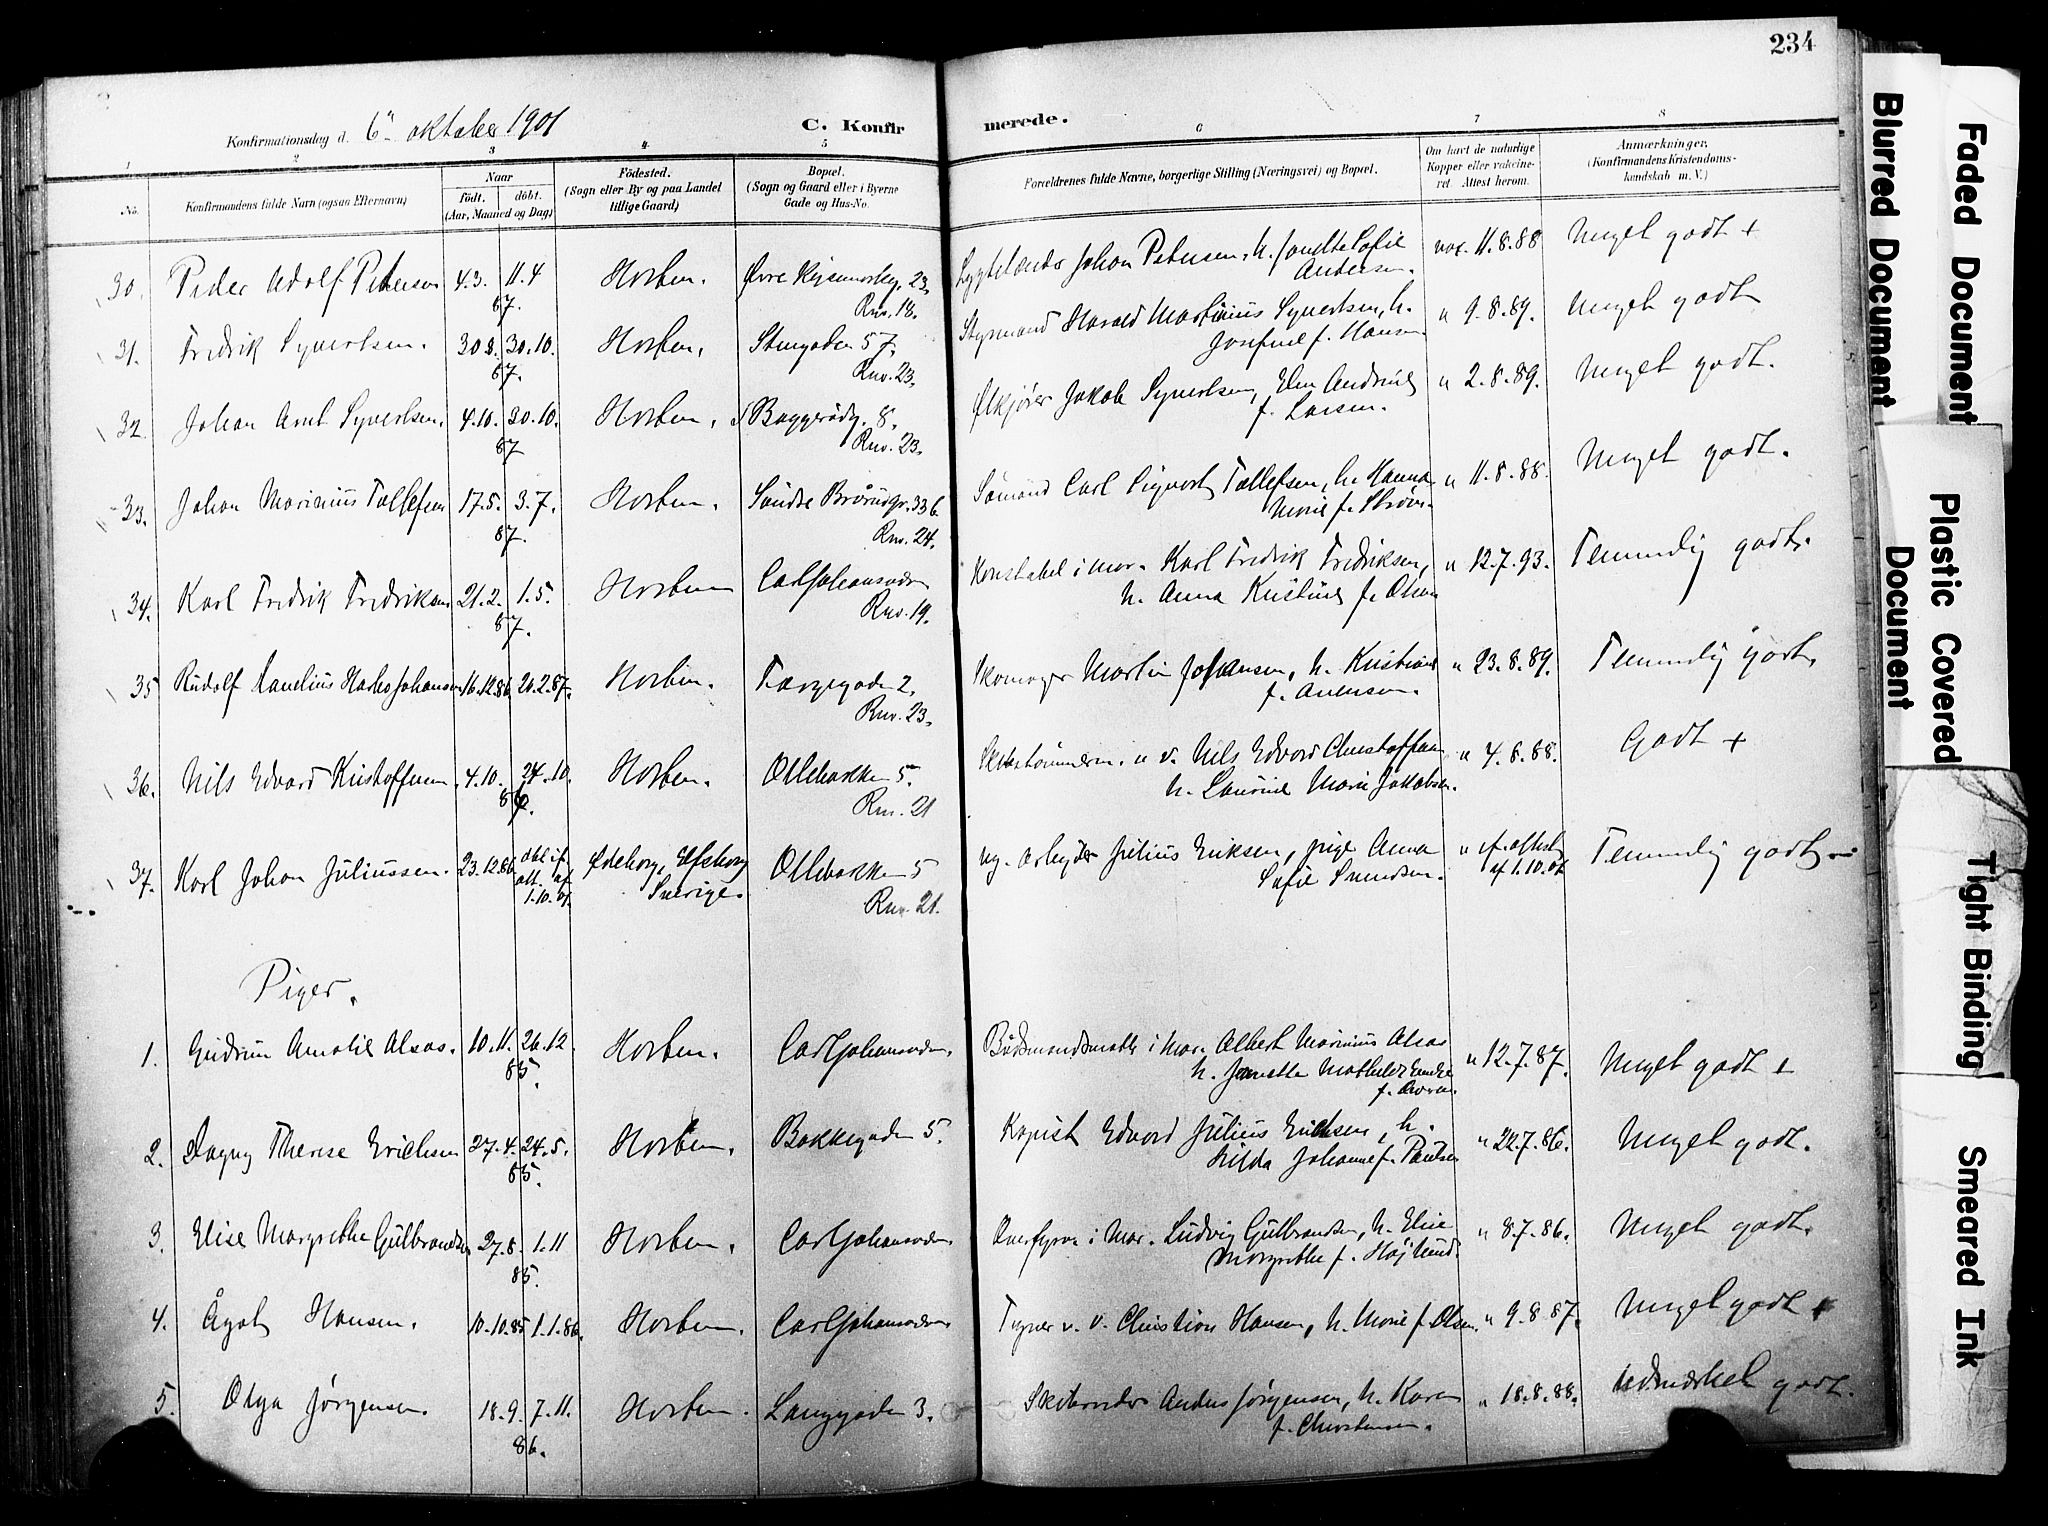 234
Konfirmationsdag d. 6te oktober 1901
C. Konfir merede.
1 2 3 4 5 6 7 8
No.
Konfirmandens fulde Navn (ogsaa Efternavn)
Naar
født. døbt.
(Aar, Maaned og Dag)
Fødested.
(Sogn eller By og paa Landet
tillige Gaard)
Bopæl.
(Sogn og Gaard eller i Byerne
Gade og Hus-No.
Forældrenes fulde Navne, borgerlige Stilling (Næringsvei) og Bopæl.
Om havt de naturlige
Kopper eller vakcine-
ret. Attest herom.
Anmærkninger,
(Konfirmandens Kristendoms-
kundskab m. V.)
30. Peder Adolf Petersen 4.3. 11.4 87. Horten. Øvre Keisemarksg. 23, Rnv. 18. Johan Petersen, h. Janette Sofie Andersen. vax. 11.8.88 Meget godt +
31. Fredrik Syvertsen. 30.8. 30.10. 87. Horten. Stengaden 57, Rnv. 23, Styrmand Harald Martinius Syvertsen, h. Josefine f. Hansen " 9.8.89. Meget godt
32. Johan Arnt Syvertsen. 4.10. 30.10. 87 Horten. Baggerødg. 8. Rnv. 23, Ølkjører Jakob Syvertsen, Elen Andrine f. Larsen. " 2.8.89. Meget godt.
33. Johan Marinius Tollefsen 17.5. 3.7. 87. Horten. Søndre Brårudgr. 33b Rnv. 24. Sømand Carl Sigvart Tollefsen, h. Hanna Marie f. Strøm. " 11.8.88. Meget godt.
34. Karl Fredrik Fredriksen 21.2. 1.5. 87. Horten Carljohansværn Rnv. 19. Konstabel i mar. Karl Fredrik Fredriksen, h. Anna Kristine f. Olsen " 12.7.93. Temmelig godt.
35 Rudolf Kanelius Johansen 16.12.86 20.2.87. Horten. Torvegaden 2. Rnv. 23, Skomager Martin Johansen, h. Kristiane f. Andersen. " 23.8.89. Temmelig godt.
36. Nils Edvard Kristoffersen 4.10. 24.10. 86. Horten. Ollebakken 5. Rnv. 21 Skibstømmerm. v. v. Nils Edvard Christoffersen h. Laurine Marie Jakobsen. " 4.8.88. Godt +
37. Karl Johan Juliussen. 23.12.86 døbt if. att. af 1.10.01. Ødeborg, Elfsborg Sverige. Ollebakken 5 Rnv. 21. ug. arbeider Julius Eriksen, pige Anna Sofie Svendsen. " if. attest af 1.10.01 Temmelig godt
Piger.
1. Gudrun Amalie Alsos. 10.11. 26.12 85. Horten. Carljohansværn. Baadsmandsmath i mar. Albert Marinius Alsos h. Janette Mathilde " 12.7.87. Meget godt +
2. Dagny Therese Erichsen 27.4. 24.5. 85. Horten. Bakkegaden 5. Kopist Edvard Julius Erichsen, h. Hilda Johanne f. Paulsen " 22.7.86. Meget godt.
3. Elise Margrethe Gulbrandsen 27.8. 1.11 85. Horten. Carljohansværn Overfyrb. i Mar. Ludvig Gulbrandsen, h. Elise Margrethe f. Højlund. " 8.7.86. Meget godt.
4. Ågot Hansen. 10.10.85 1.1.86. Horten. Carljohansværn. Tegner v. v. Christian Hansen, h. Marie f. Olsen. " 9.8.87. Meget godt +
5. Olga Jørgensen. 18.9. 7.11. 86. Horten. Langgaden 3. Anders Jørgensen, h. Karen f. Christensen. " 18.8.88. Udmærket godt.
Faded Document
Blurred Document
Plastic Covered
Document
Tight Binding
Smeared Ink